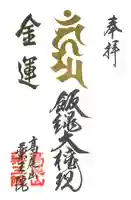 奉拝
飯縄大権現
金運
高尾山
薬王院